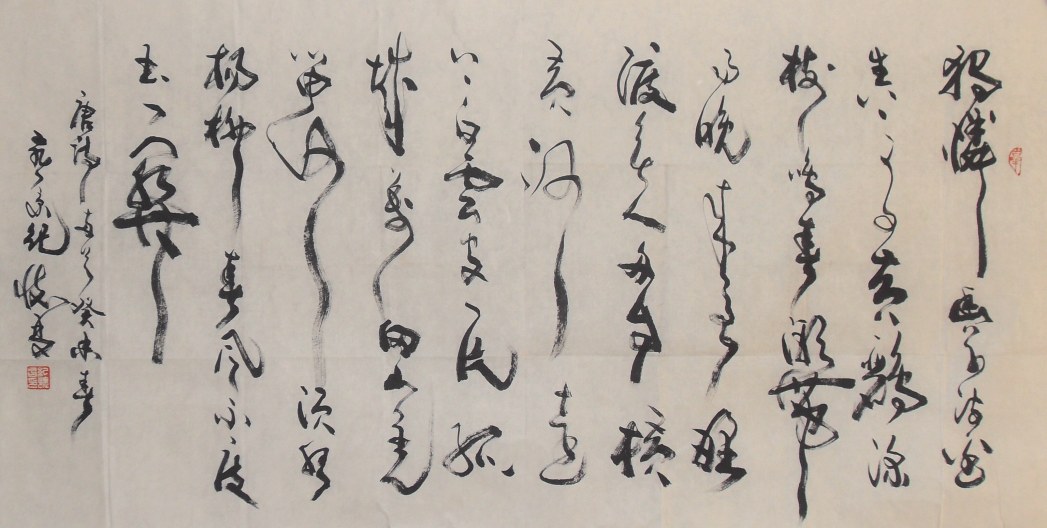 獨憐幽草澗邊
生上有黃鸝深
樹鳴春潮帶
雨晚來急野
渡無人舟自橫
黃河遠
上白雲間一片孤
城萬仞山羌
笛何須怨
楊柳春風不度
玉門關
唐詩二首癸未春